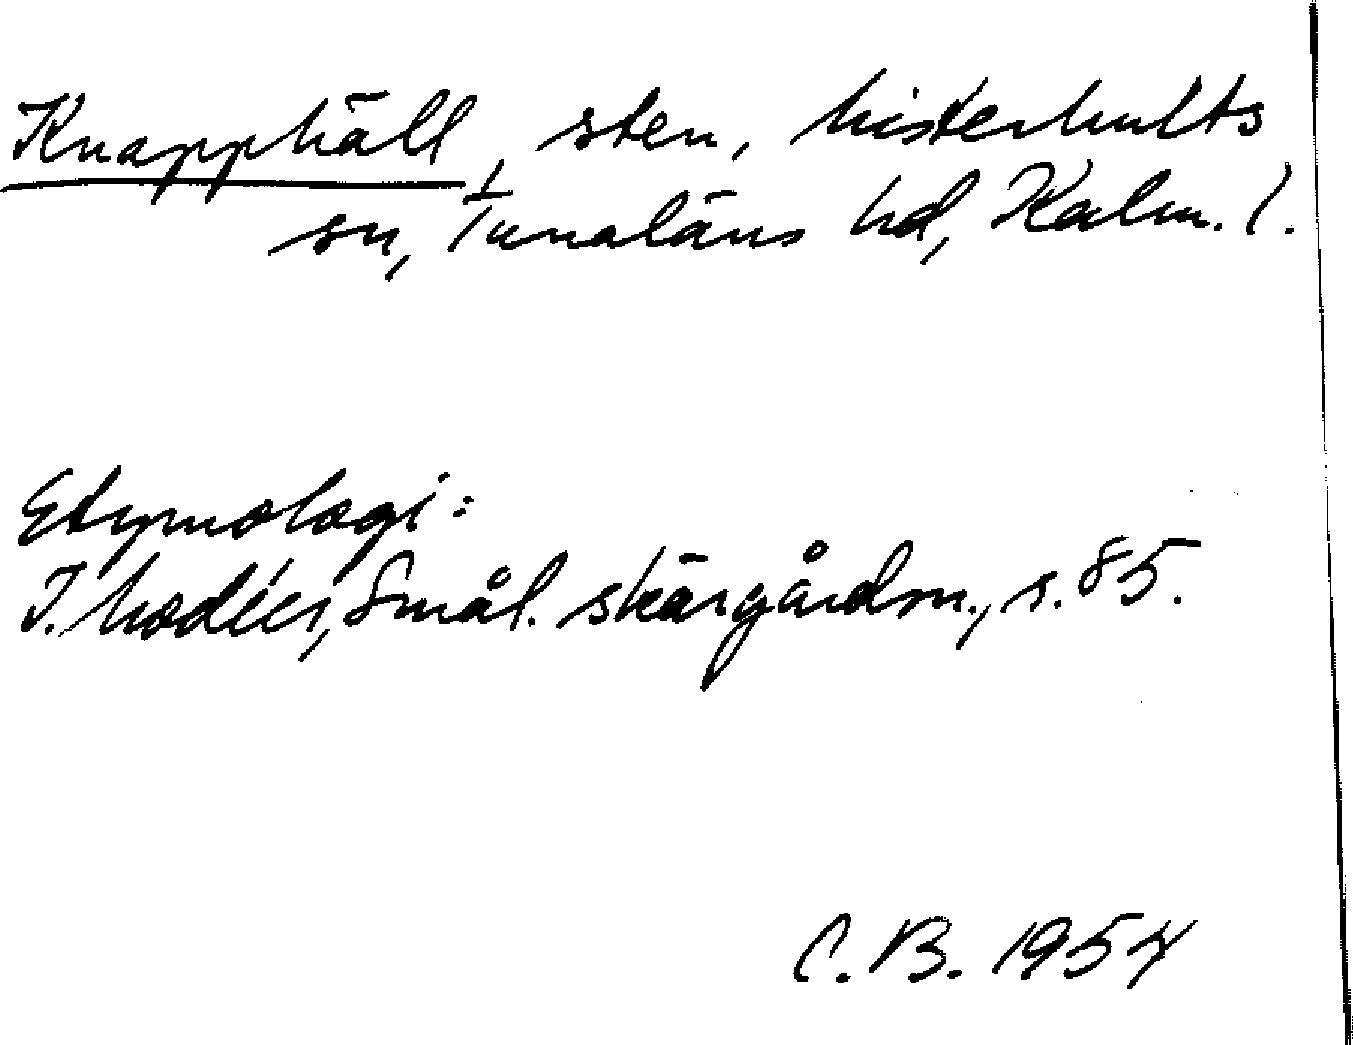 Knapphäll, sten, Misterhults
sn, Tunaläns hd, Kalm. l.
Etymologi:
I. Modéer, Smål. skärgårdsn., s. 85.
C. B. 1954